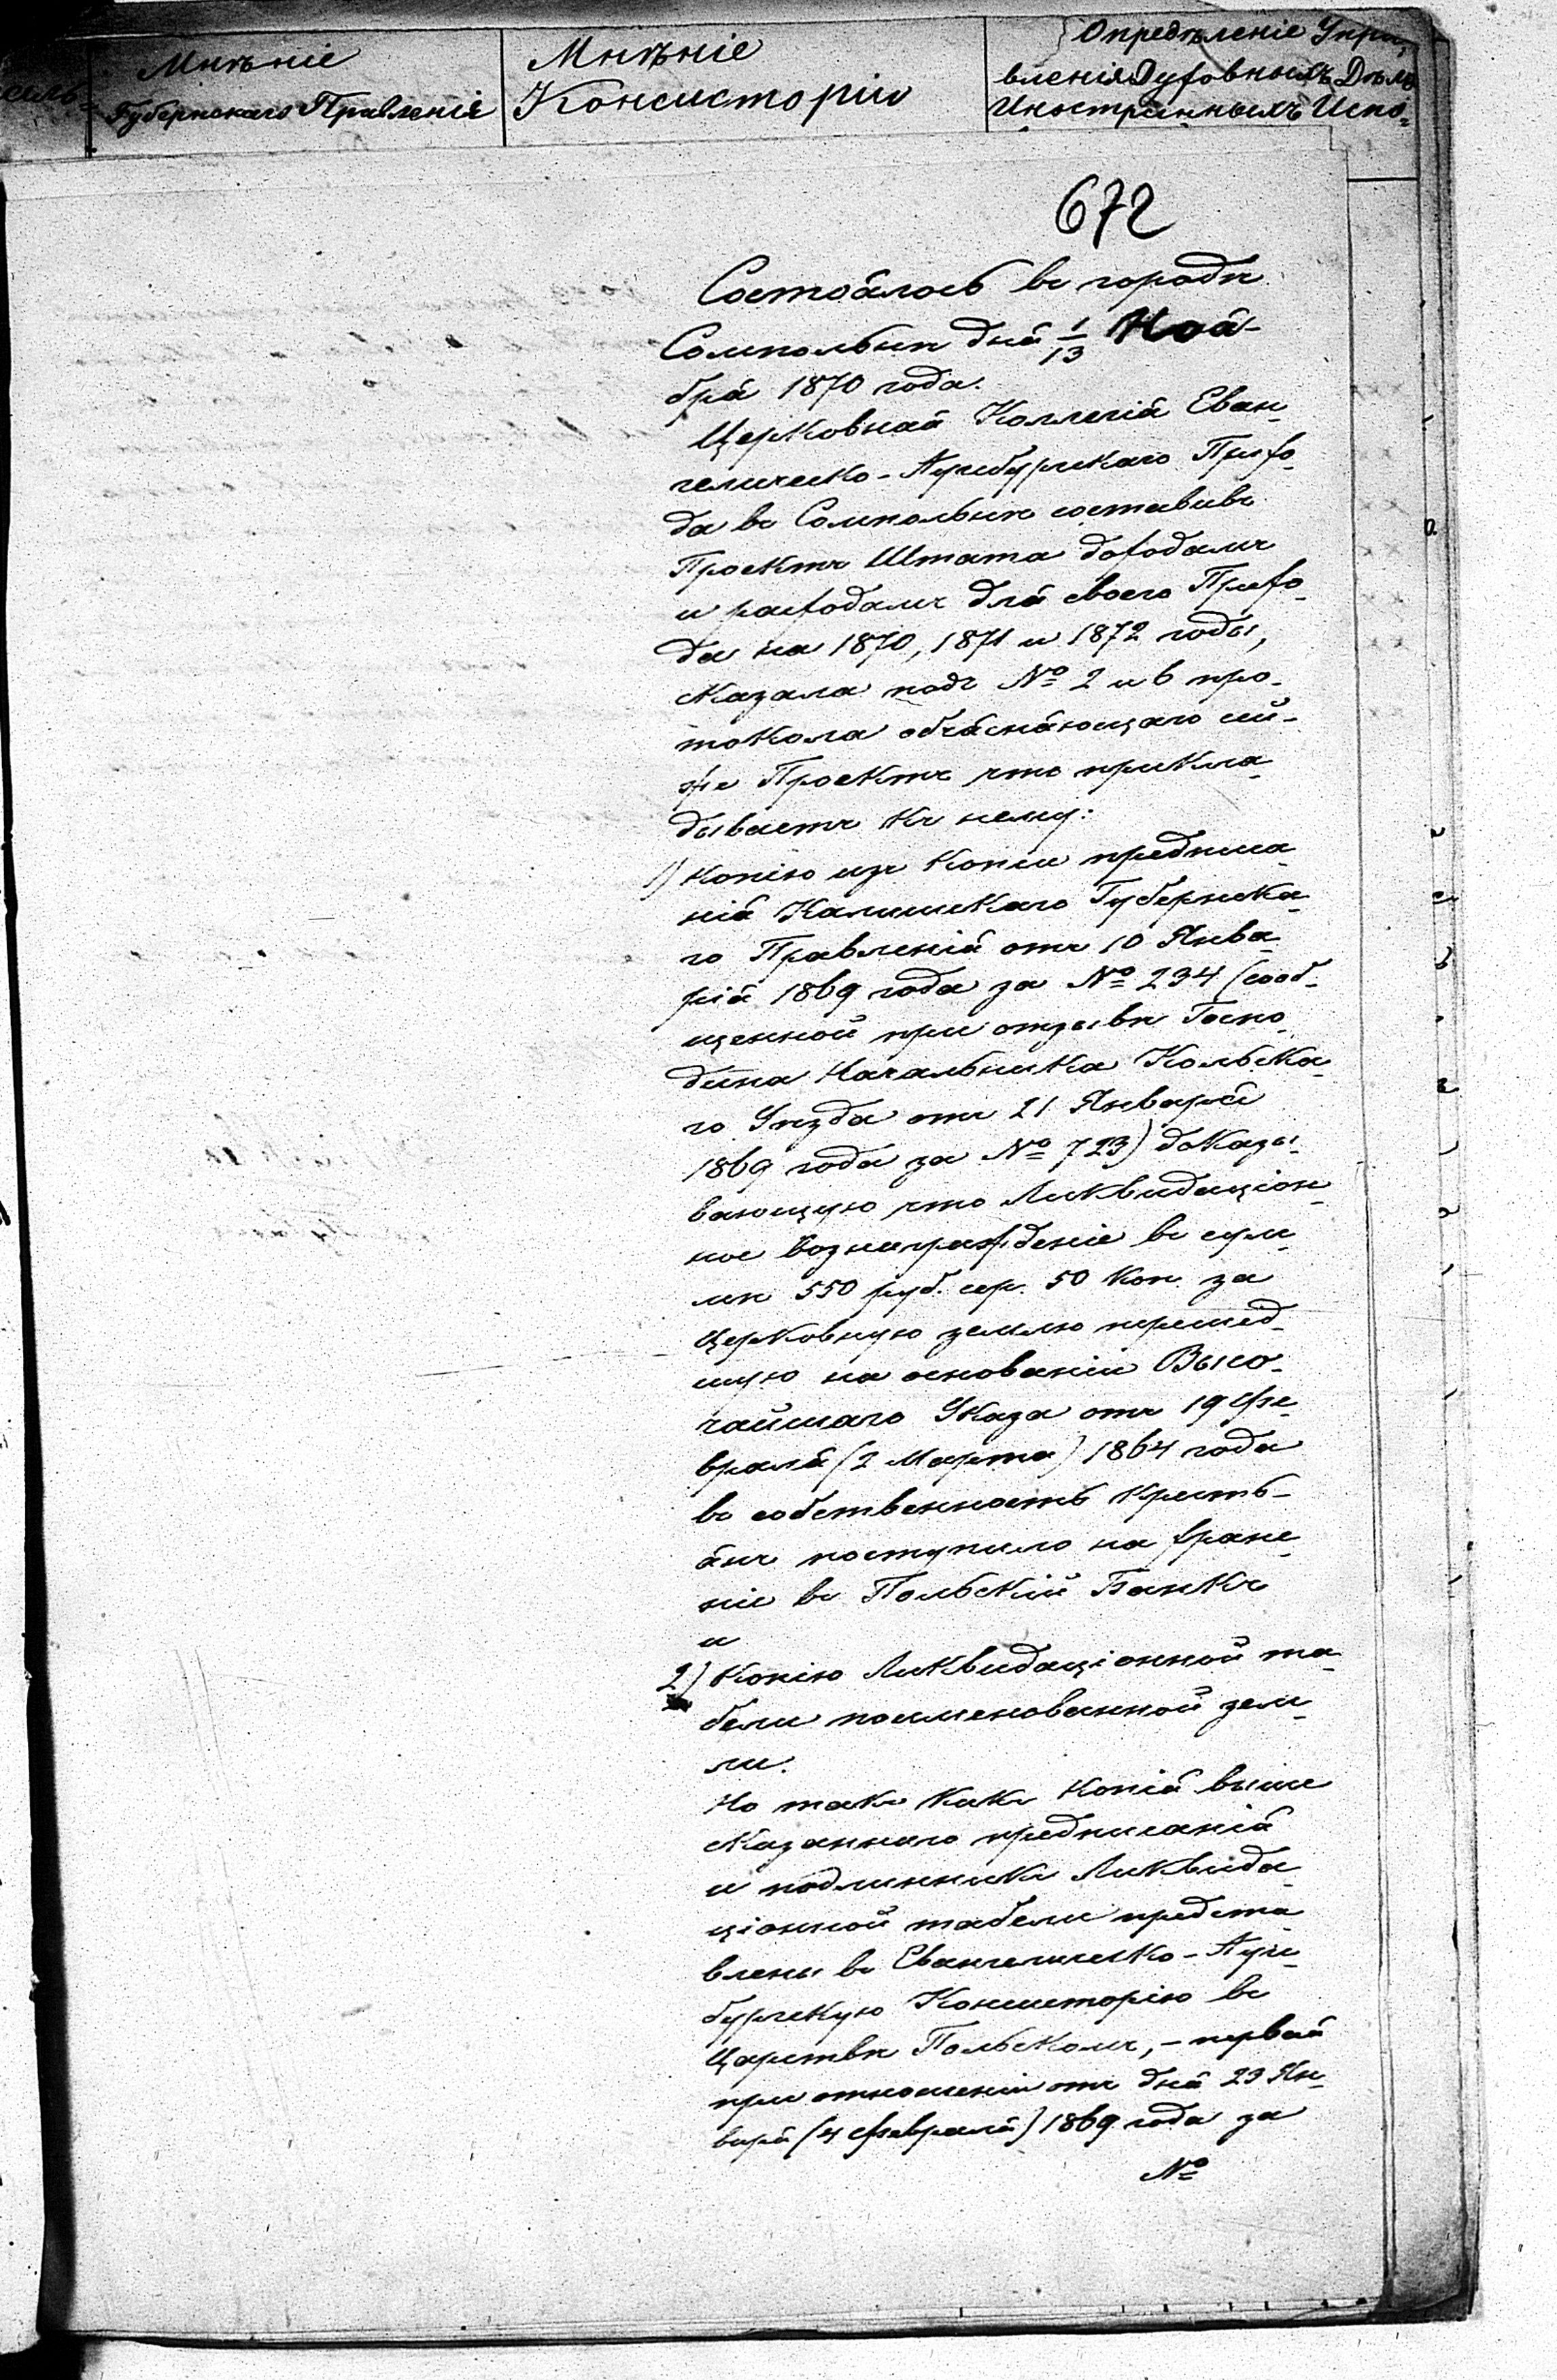 Мнѣніе
Губернскаго Правленія
Мнѣніе
Консисторіи
Опредѣленіе Упра-
вленія Духовныхъ Дѣлъ
Иностранныхъ Испо-
672
Состоялось въ городѣ
Сомпольнѣ дня 1/13 Ноя-
бря 1870 года.
Церковная Коллегія Еван-
гелическо-Аугсбургскаго Прихо-
да въ Сомпольнѣ составивъ
Проектъ Штата доходамъ
и расходамъ для своего Прихо-
да на 1870, 1871 и 1872 годы,
сказала подъ № 2 и 6 про-
токола объясняющаго сей-
же Проектъ что прикла-
дываетъ къ нему:
1) Копію изъ копіи предписа-
нія Калишскаго Губернска-
го Правленія отъ 10 Янва-
рія 1869 года за № 234 (сооб-
щенной при отзывѣ Госпо-
дина Начальника Кольска-
го Уѣзда отъ 21 Января
1869 года за № 723) доказы-
вающую что Ликвидаціон-
ное вознагражденіе въ сум-
мѣ 550 руб. сер. 50 коп. за
церковную землю перешед-
шую на основаніи Высо-
чайшаго Указа отъ 19 Фе-
враля (2 Марта) 1864 года
въ собственность кресть-
янъ поступило на хране-
ніе въ Польскій Банкъ
и
2) Копію Ликвидаціонной та-
бели поименованной зем-
ли.
Но такъ какъ копія выше
сказаннаго предписанія
и подлинникъ Ликвида-
ціонной табели предста-
влены въ Евангелическо-Аугс-
бургскую Консисторію въ
Царствѣ Польскомъ, - первая
при отношеніи отъ дня 23 Ян-
варя (4 Февраля) 1869 года за
№